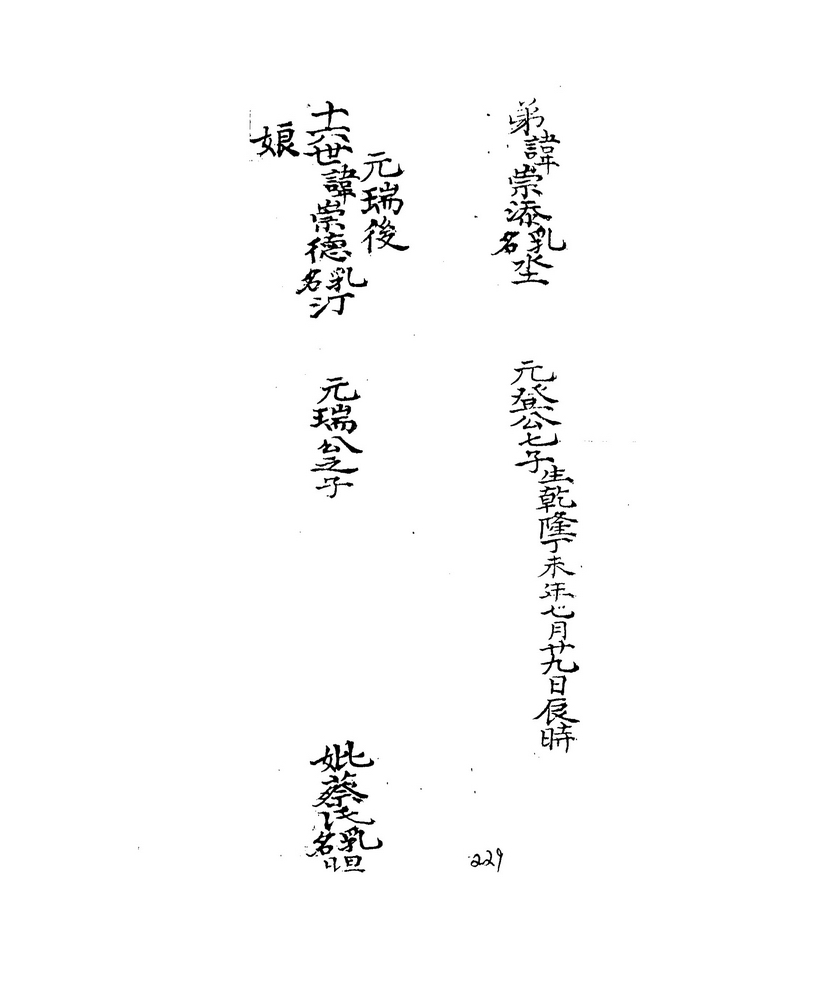 弟諱崇添乳名坔
元登公七子生乾隆丁未年七月廿九日辰時
元瑞後
十六世諱崇德乳名汀
元瑞公之子
妣蔡氏乳名
娘
229